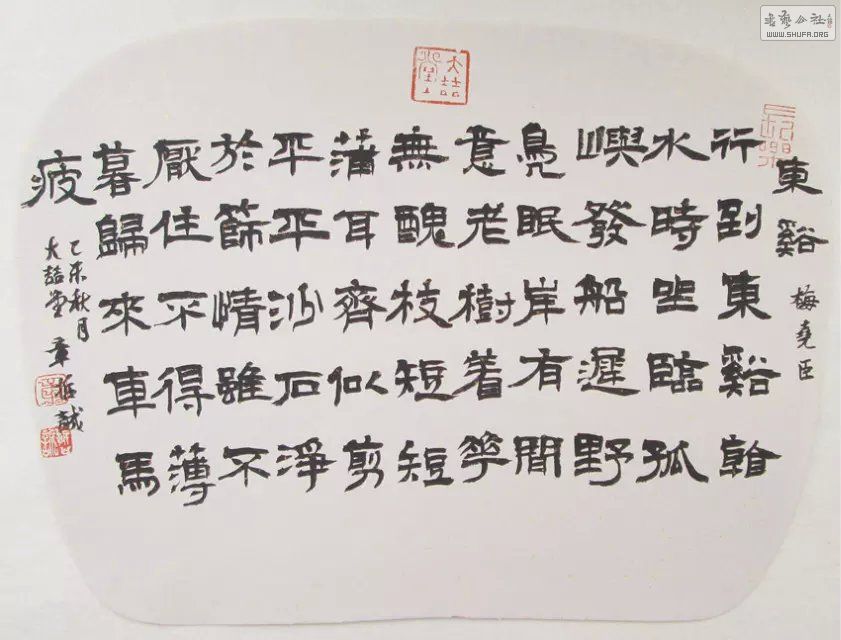 書藝公社
WWW.SHUFA.ORG
東谿 梅堯臣
行到東谿看
水時坐臨孤
嶼發船遲野
鳧眠岸有閒
意老樹着華
無醜枝短短
蒲耳齊似剪
平平沙石淨
於篩情雖不
厭住不得薄
暮歸來車馬
疲
乙未秋月
大喆堂 章